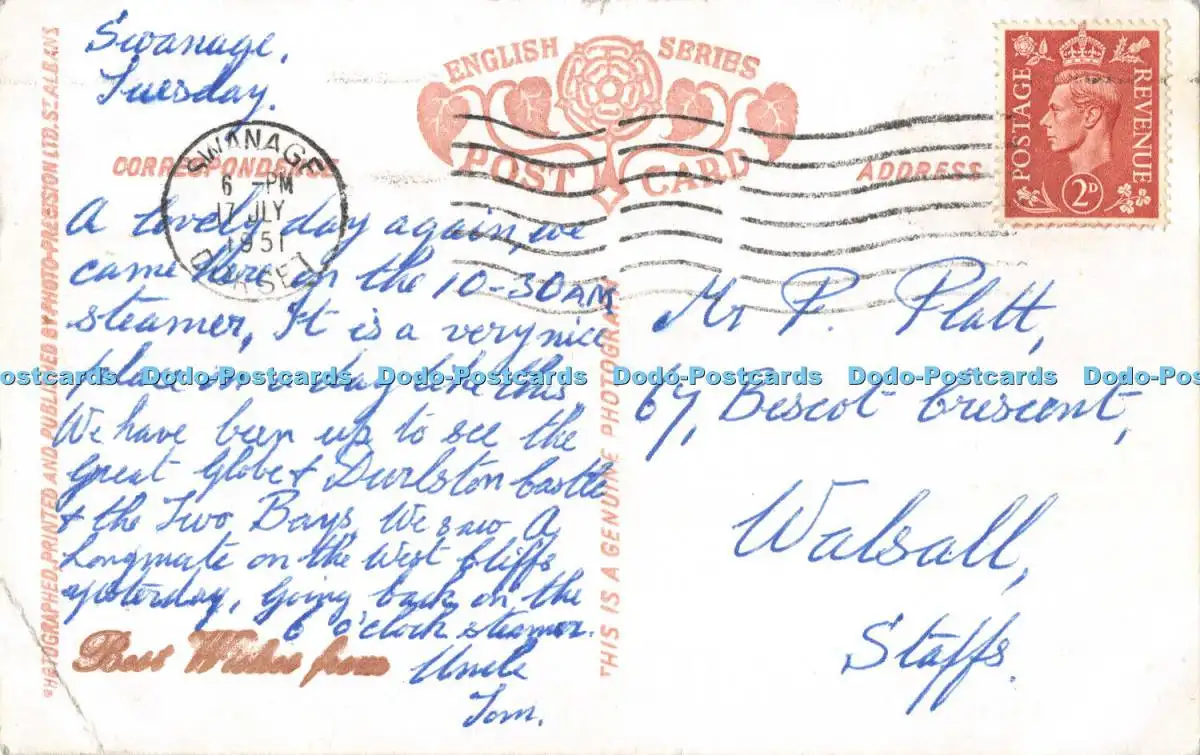 Swanage,
Tuesday.
ENGLISH SERIES
POST CARD
CORRESPONDENCE
ADDRESS
SWANAGE
6 - PM
17 JLY
1951
DORSET
POSTAGE
REVENUE
2D
A lovely day again, we
came here on the 10-30AM
steamer, It is a very nice
place on a day like this.
We have been up to see the
Great Globe & Durlston Castle
& the Two Bays, We saw A
Longmate on the West Cliffs
yesterday, Going back on the
6 o'clock steamer.
Best Wishes from
Uncle
Tom.
Mr P. Platt,
67, Bescot Crescent,
Walsall,
Staffs.
PHOTOGRAPHED, PRINTED AND PUBLISHED BY PHOTO-PRECISION LTD. ST. ALBANS
THIS IS A GENUINE PHOTOGRAPH
Postcards Dodo-Postcards Dodo-Postcards Dodo-Postcards Dodo-Postcards Dodo-Post